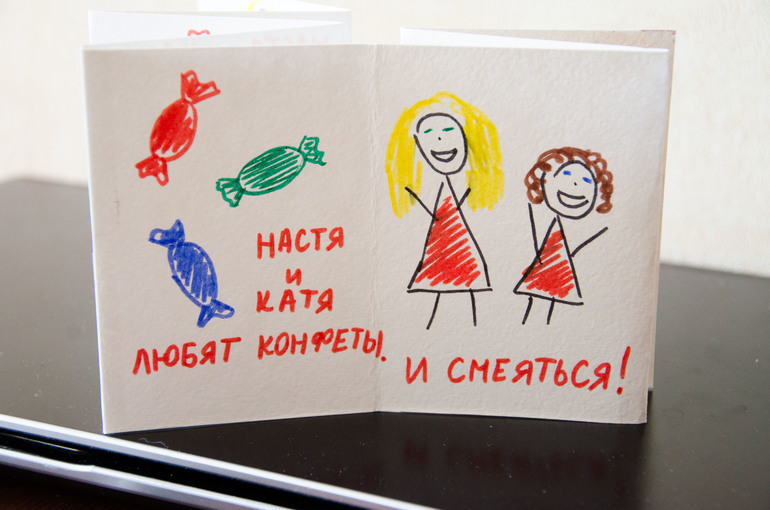 НАСТЯ
и
КАТЯ
ЛЮБЯТ КОНФЕТЫ.
И СМЕЯТЬСЯ!